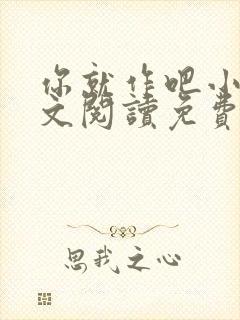 你就作吧小
文阅讀免費
思我之心